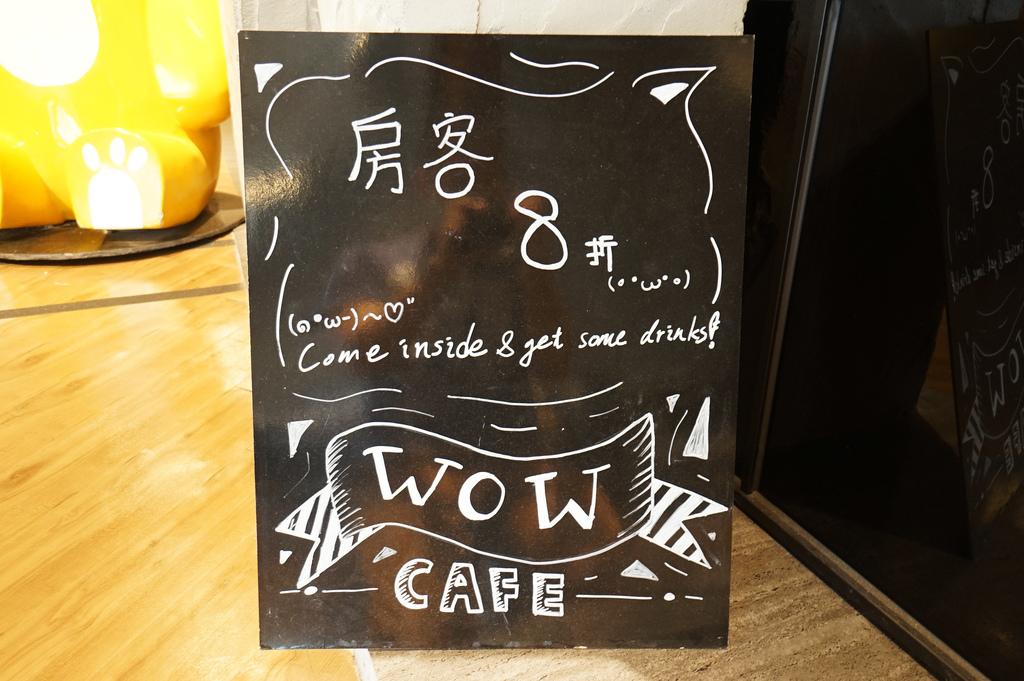 房客
8折
(๑•ω-)～♡"
(••ω••)
Come inside & get some drinks!
WOW
CAFE